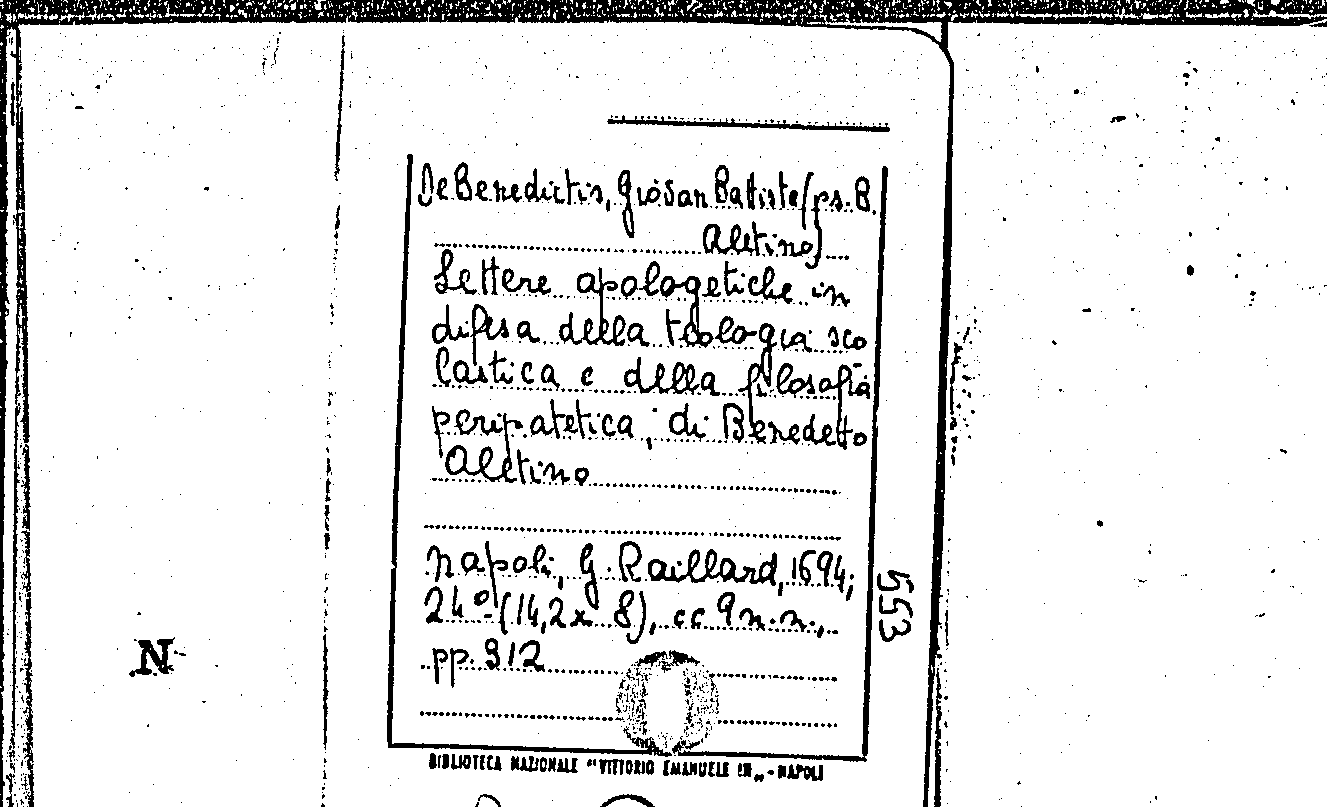 De Benedictis, Giovan Battista (ps. B.
Aletino)
Lettere apologetiche in
difesa della teologia sco
lastica e della filosofia
peripatetica, di Benedetto
Aletino
Napoli, G. Raillard, 1694;
24º (14,2 x 8), cc 9 n.n.,
pp. 312
553
N
BIBLIOTECA NAZIONALE "VITTORIO EMANUELE III„ - NAPOLI